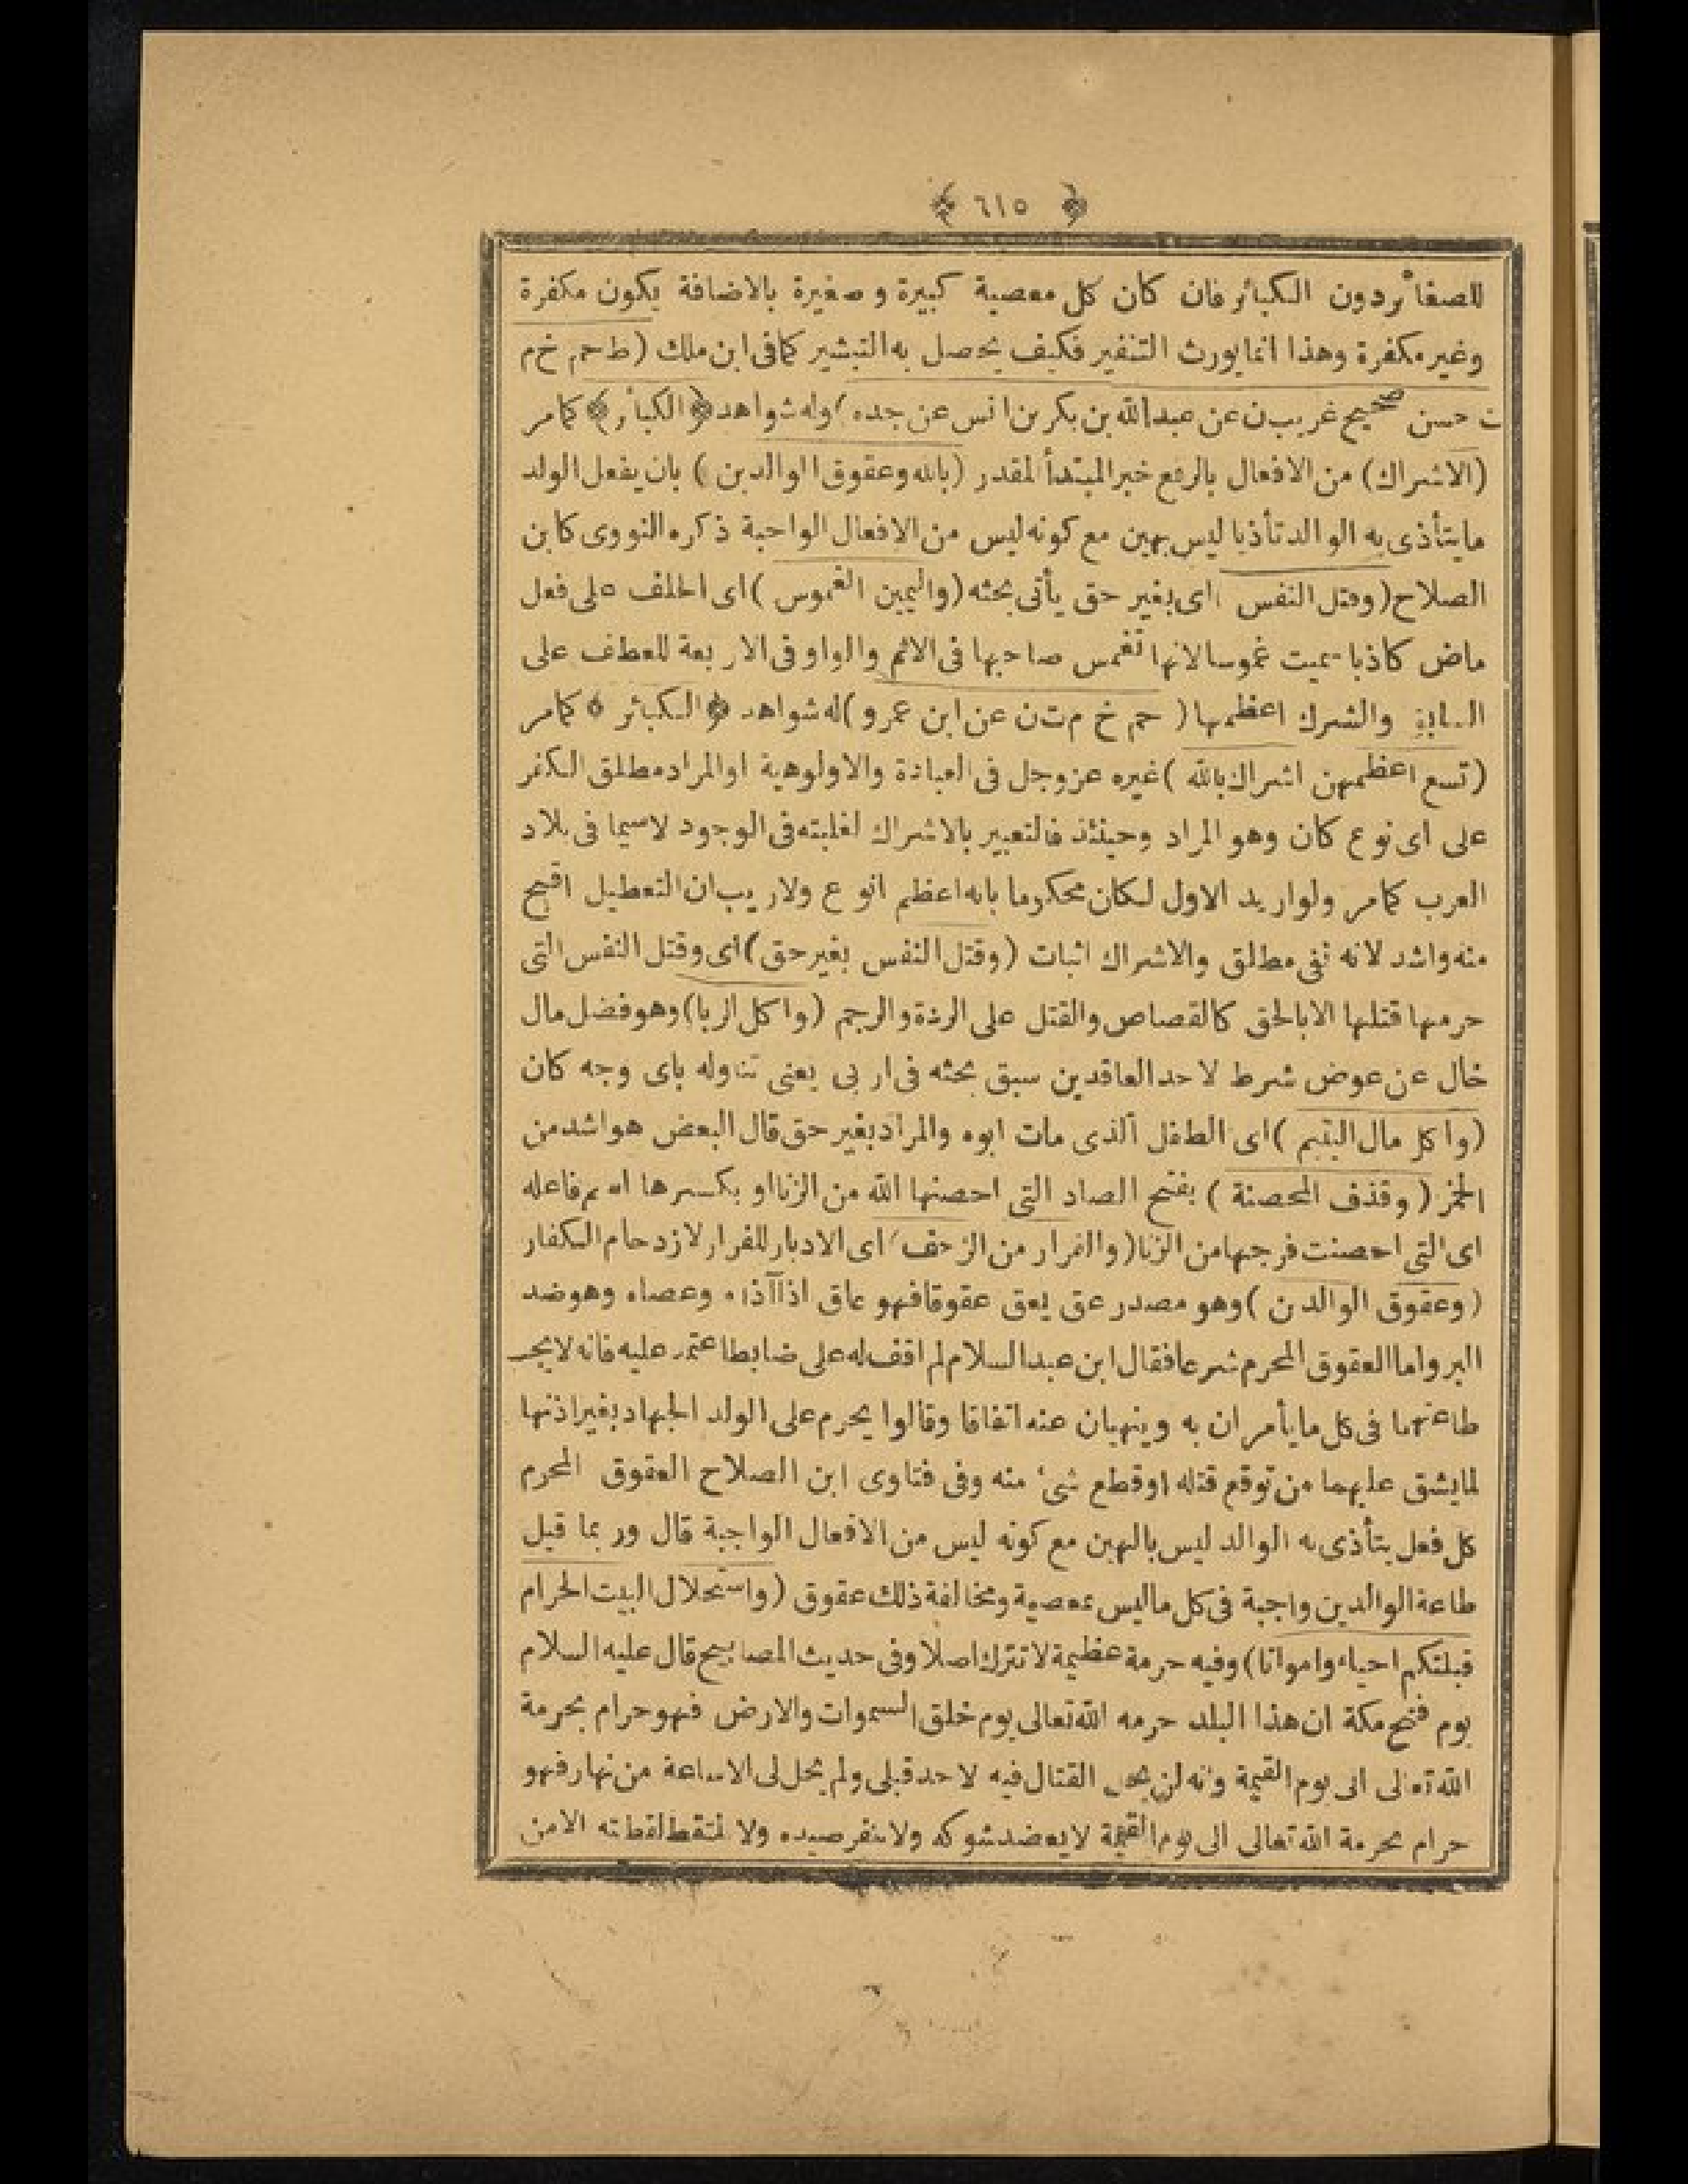 ﴿ ٦١٥ ﴾
للصغائر دون الكبائر فان كان كل معصية كبيرة و صغيرة بالاضافة يكون مكفرة
وغير مكفرة وهذا انما يورث التنفير فكيف يحصل به التبشير كمافى ابن ملك (ط حم خ م
ت حسن صحيح غريب ن عن عبدالله بن بكر بن انس عن جده) وله شواهد ﴿الكبائر﴾ كمامر
(الاشراك) من الافعال بالرفع خبرالمبتدأ المقدر (بالله وعقوق الوالدين) بان يفعل الولد
مايتأذى به الوالد تأذيا ليس بهين مع كونه ليس من الافعال الواجبة ذكره النووى كابن
الصلاح (وقتل النفس) اى بغير حق يأتى بحثه (واليمين الغموس) اى الحلف على فعل
ماض كاذبا سميت غموسا لانها تغمس صاحبها فى الاثم والواو فى الاربعة للعطف على
السابق والشرك اعظمها (حم خ م ت ن عن ابن عمرو) له شواهد ﴿الكبائر﴾ كمامر
(تسع اعظمهن اشراك بالله) غيره عزوجل فى العبادة والاولوهية اوالمراد مطلق الكفر
على اى نوع كان وهو المراد وحينئذ فالتعبير بالاشراك لغلبته فى الوجود لاسيما فى بلاد
العرب كمامر ولواريد الاول لكان محكوما بانه اعظم انوع ولاريب ان التعطيل اقبح
منه واشد لانه نفى مطلق والاشراك اثبات (وقتل النفس بغير حق) اى وقتل النفس التى
حرمها قتلها الابالحق كالقصاص والقتل على الردة والرجم (واكل الربا) وهو فضل مال
خال عن عوض شرط لاحد العاقدين سبق بحثه فى اربى يعنى تناوله باى وجه كان
(واكل مال اليتيم) اى الطفل الذى مات ابوه والمراد بغير حق قال البعض هواشد من
الخمر (وقذف المحصنة) بفتح الصاد التى احصنها الله من الزنا او بكسرها اسم فاعله
اى التى احصنت فرجها من الزنا (والفرار من الزحف) اى الادبار للفرار لازدحام الكفار
(وعقوق الوالدين) وهو مصدر عق يعق عقوقا فهو عاق اذا آذاه وعصاه وهو ضد
البر واما العقوق المحرم شرعا فقال ابن عبدالسلام لم اقف له على ضابط اعتمد عليه فانه لا يجب
طاعتهما فى كل مايأمران به وينهيان عنه اتفاقا وقالوا يحرم على الولد الجهاد بغير اذنها
لمايشق عليهما من توقع قتله اوقطع شئ منه وفى فتاوى ابن الصلاح العقوق المحرم
كل فعل يتأذى به الوالد ليس بالهين مع كونه ليس من الافعال الواجبة قال وربما قيل
طاعة الوالدين واجبة فى كل ماليس بمعصية ومخالفة ذلك عقوق (واستحلال البيت الحرام
قبلتكم احياء وامواتا) وفيه حرمة عظيمة لاتترك اصلا وفى حديث المصابيح قال عليه السلام
يوم فتح مكة ان هذا البلد حرمه الله تعالى يوم خلق السموات والارض فهو حرام بحرمة
الله تعالى الى يوم القيمة وانه لن يحل القتال فيه لاحد قبلى ولم يحل لى الاساعة من نهار فهو
حرام بحرمة الله تعالى الى يوم القيمة لايعضد شوكه ولاينفر صيده ولا تلتقط لقطته الامن